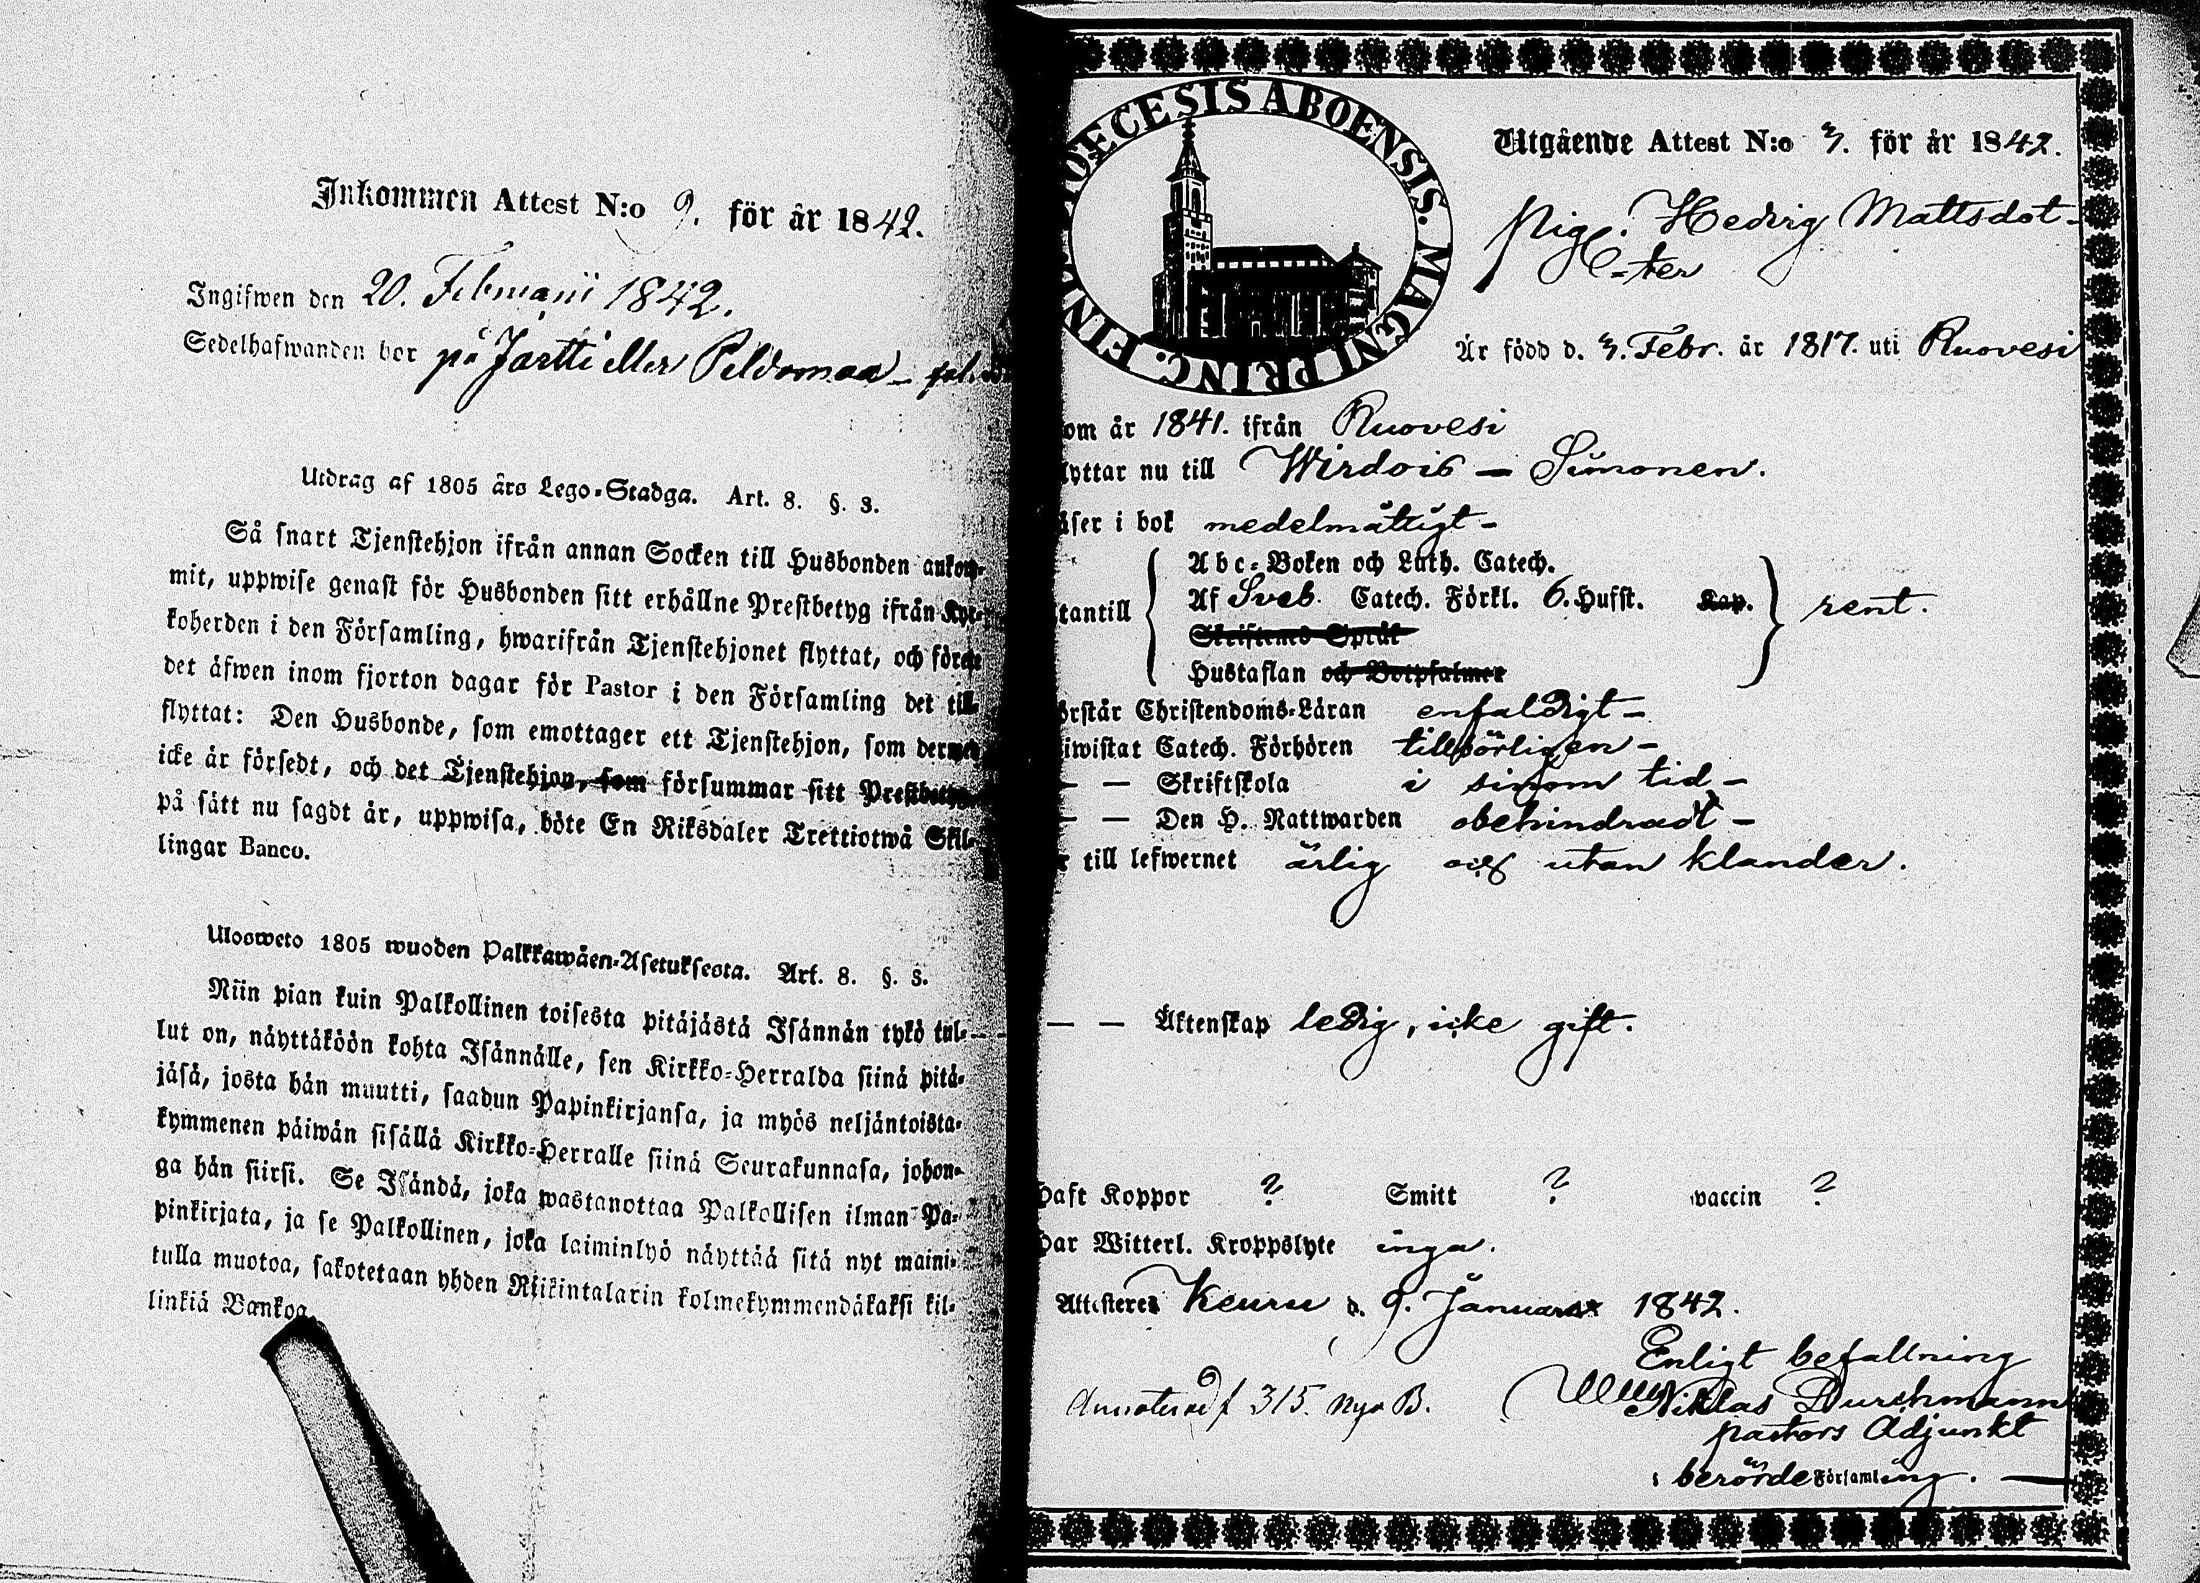 Inkommen Attest N:o 9. för år 1842.
Ingifwen den 20. Februarii 1842.
Sedelhafwanden bor på Jartti eller Peldomaa
Utdrag af 1805 års Lego-Stadga. Art. 8. §. 3.
Så snart Tjenstehjon ifrån annan Socken till Husbonden ankom-
mit, uppwise genast för Husbonden sitt erhållne Prestbetyg ifrån Kyr-
koherden i den Församling, hwarifrån Tjenstehjonet flyttat, och förete
det äfwen inom fjorton dagar för Pastor i den Församling det till-
flyttat: Den Husbonde, som emottager ett Tjenstehjon, som dermed
icke är försedt, och det Tjenstehjon, som försummar sitt Prestbetyg,
på sätt nu sagdt är, uppwisa, böte En Riksdaler Trettiotwå Skil-
lingar Banco.
Ulosweto 1805 wuoden Palkkawäen-Asetuksesta. Art. 8. §. 3.
Niin pian kuin Palkollinen toisesta pitäjästä Isännän tykö tul-
lut on, näyttäköön kohta Isännälle, sen Kirkko-Herralda siinä pitä-
jäsä, josta hän muutti, saadun Papinkirjansa, ja myös neljäntoista-
kymmenen päiwän sisällä Kirkko-Herralle siinä Seurakunnasa, johon-
ga hän siirsi. Se Isändä, joka wastanottaa Palkollisen ilman Pa-
pinkirjata, ja se Palkollinen, joka laiminlyö näyttää sitä nyt maini-
tulla muotoa, sakotetaan yhden Riikintalarin kolmekymmendäkaksi kil-
linkiä Bankoa
DIOECESIS ABOENSIS. MAGNI PRINC. FINL.
Utgående Attest N:o 3. för år 1842.
Pig. Hedvig Mattsdot-
ter
Är född d. 3. Febr. år 1817. uti Ruovesi
om år 1841. ifrån Ruovesi
lyttar nu till Wirdois – Simonen.
äser i bok medelmåttigt –
Abc-Boken och Luth. Catech.
tantill Af Sveb. Catech. Förkl. 6. Hufst. Kap. rent.
Skriftenes Språk
Hustaflan och Botpsalmer
örstår Christendoms-Läran enfaldigt –
iwistat Catech. Förhören tillbörligen –
— — Skriftskola i sinom tid –
— — Den H. Nattwarden obehindradt –
r till lefwernet ärlig och utan klander.
— — Äktenskap ledig, icke gift.
Haft Koppor ? Smitt ? vaccin ?
Har Witterl. Kroppslyte inga.
Attesteres Keuru d. 9. Januari 1842.
Enligt befallning
Niklas Durchmann
pastors Adjunkt
Annoterad f 315. nya B.
i berörde Församling.